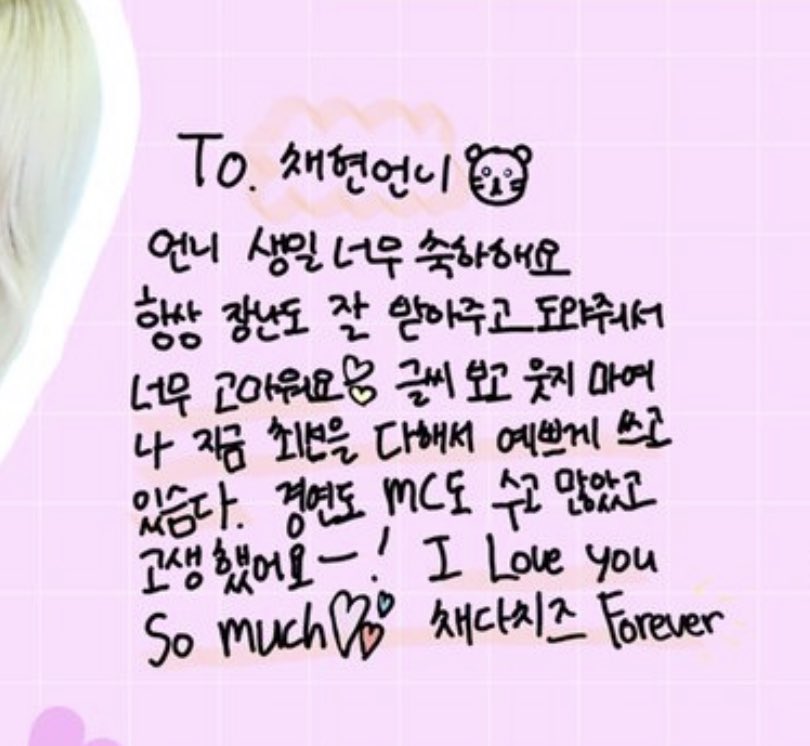 To. 채현언니
언니 생일 너무 축하해요
항상 장난도 잘 받아주고 도와줘서
너무 고마워요 글씨 보고 웃지 마여
나 지금 최선을 다해서 예쁘게 쓰고
있슴다. 경연도 MC도 수고 많았고
고생했어요ー! I Love you
So much 채다치즈 Forever